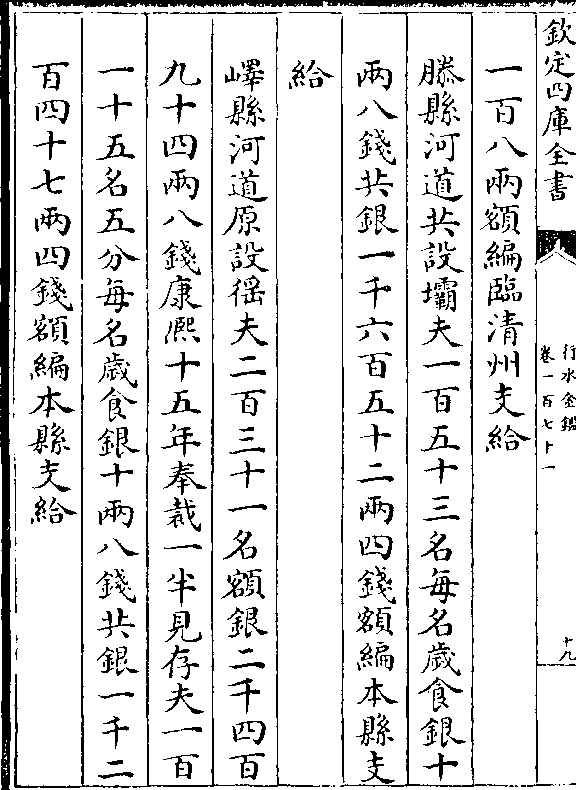 欽定四庫全書
行水金鑑
卷一百七十一
十九
一百八兩額編臨清州支給
滕縣河道共設壩夫一百五十三名每名歲食銀十
兩八錢共銀一千六百五十二兩四錢額編本縣支
給
嶧縣河道原設徭夫二百三十一名額銀二千四百
九十四兩八錢康熙十五年奉裁一半見存夫一百
一十五名五分每名歲食銀十兩八錢共銀一千二
百四十七兩四錢額編本縣支給